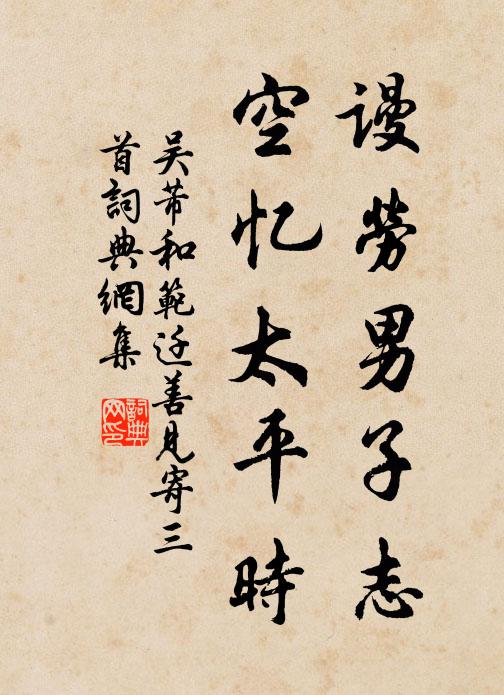 謾勞男子志
空忆太平時
吴芾和範迁善見寄三
首詞典網集
詞典网印